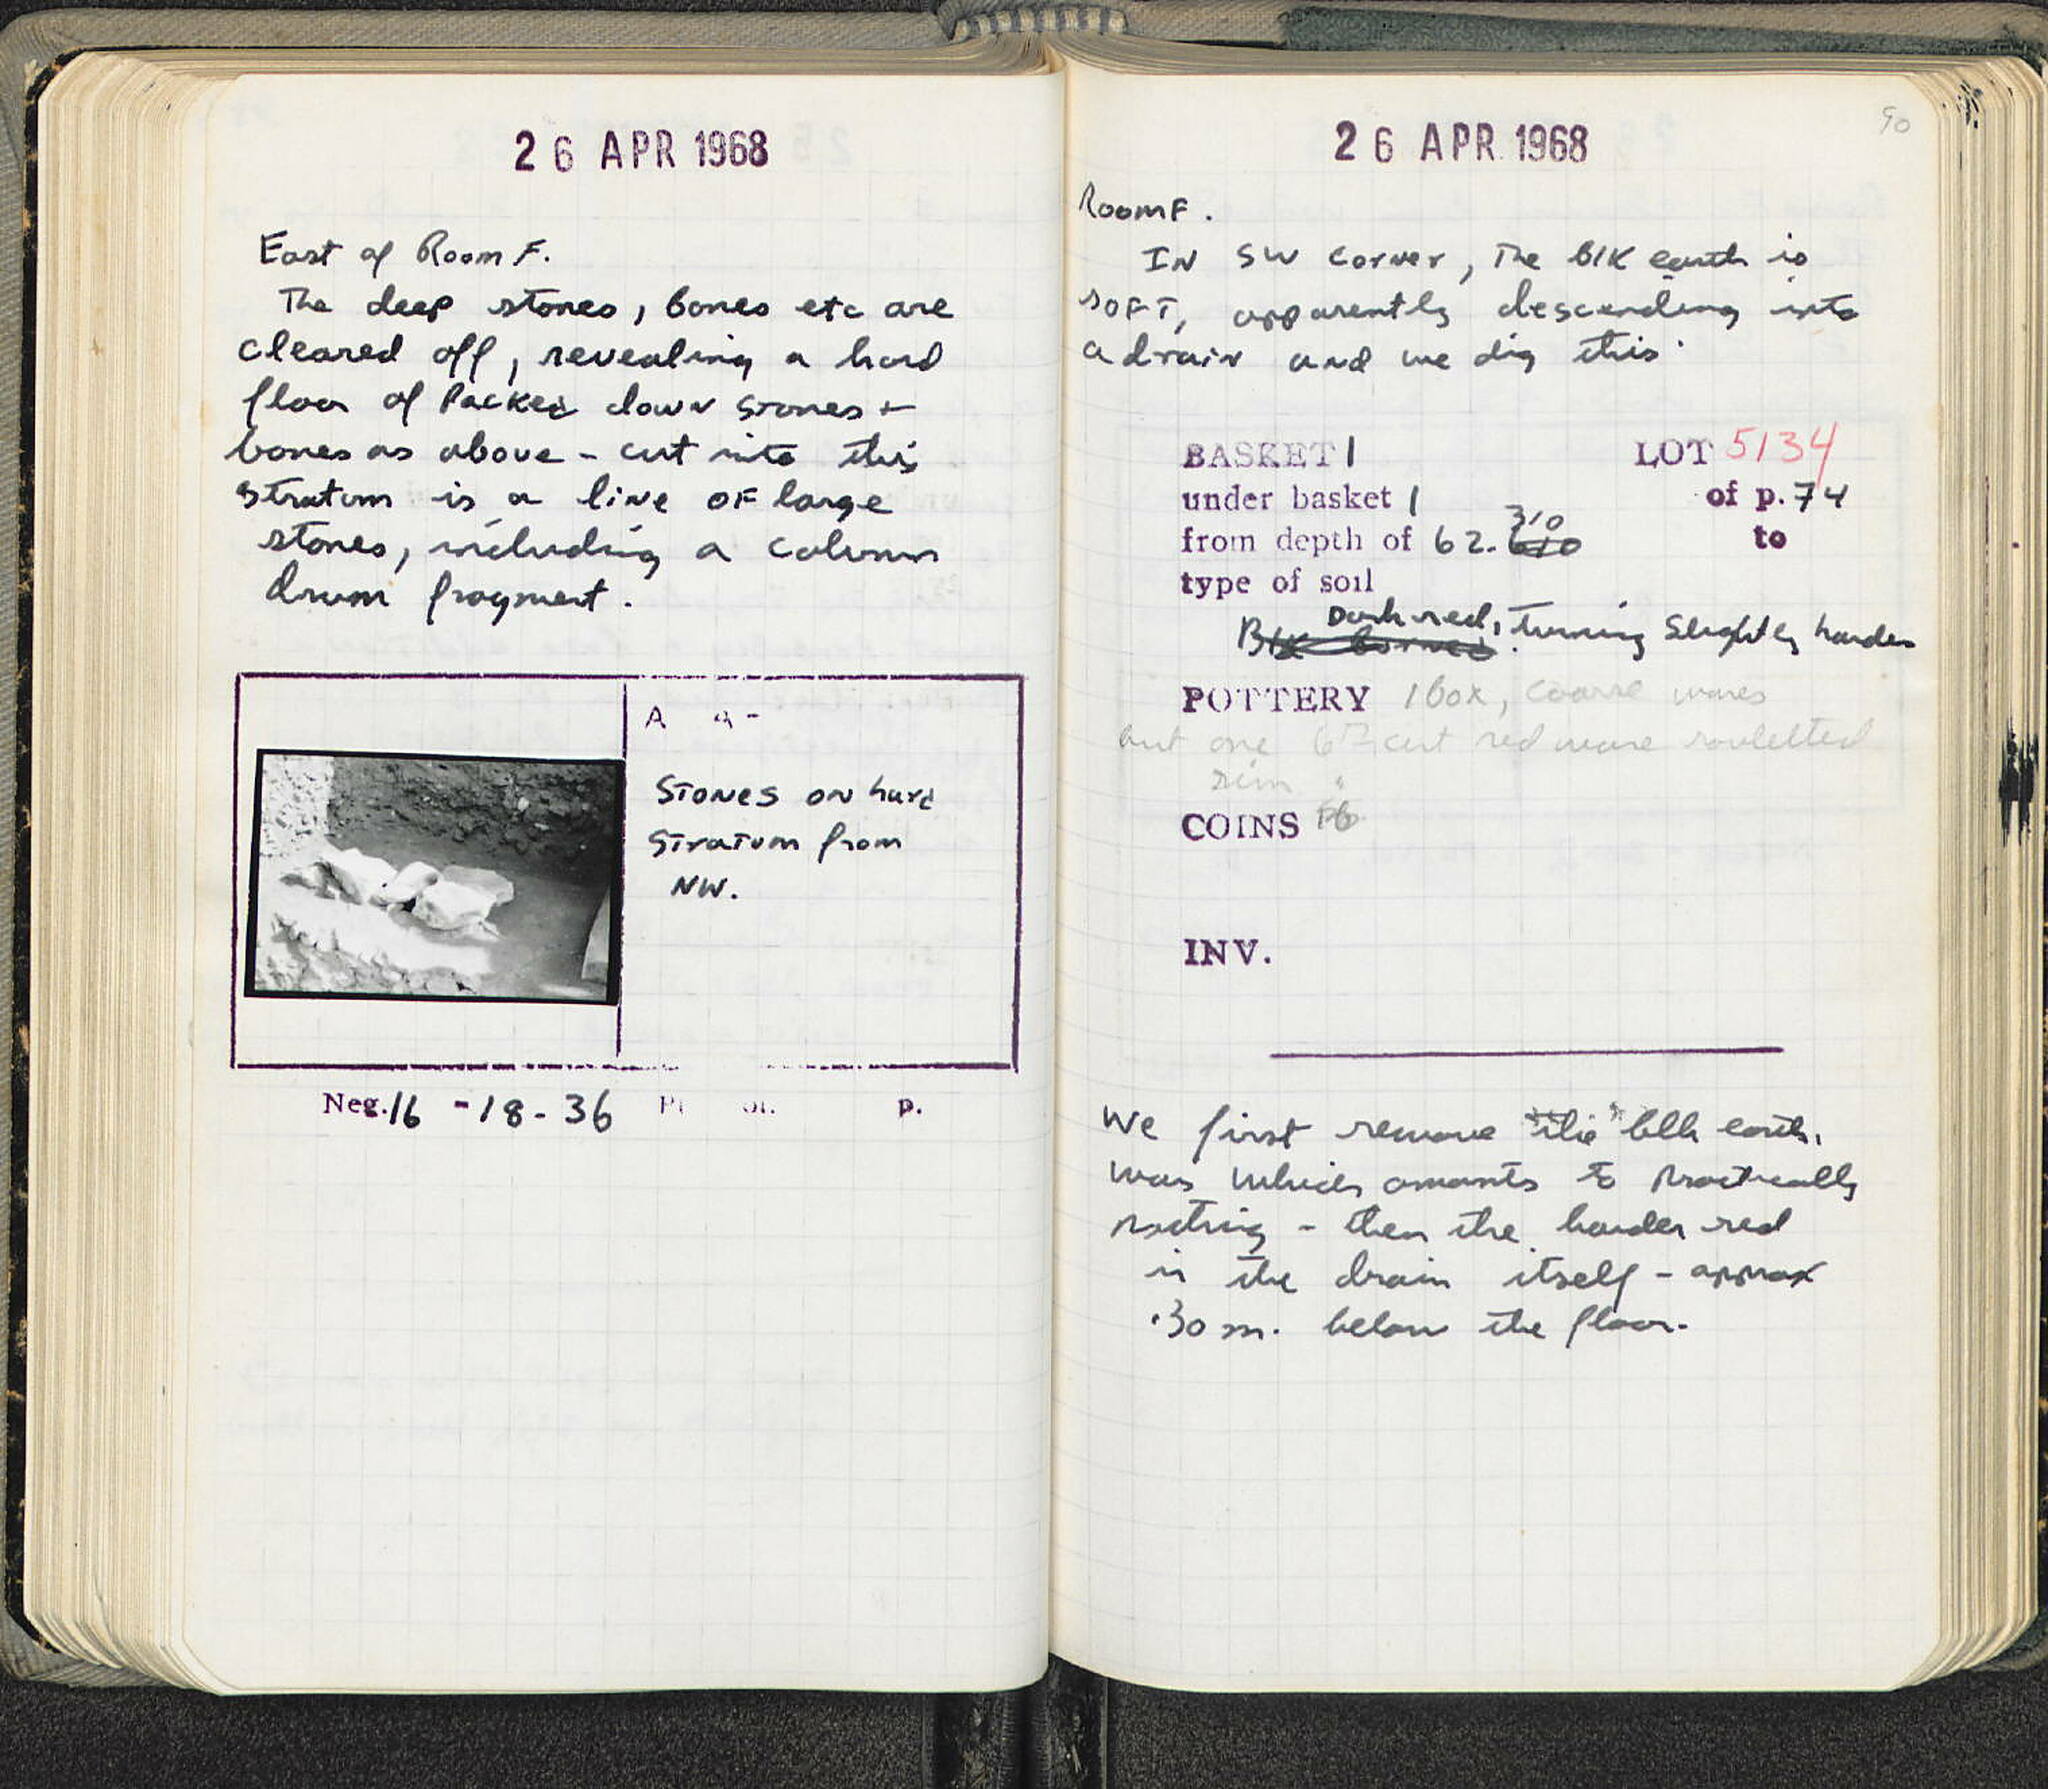 26 APR 1968
East of Room F.
The deep stones, bones etc are
cleared off, revealing a hard
floor of packed down stones +
bones as above - cut into this
stratum is a line of large
stones, including a column
drum fragment.
A
Stones on hard
stratum from
NW.
Neg. 16 - 18 - 36 p.
26 APR 1968
90
Room F.
In SW corner, the blk earth is
soft, apparently descending into
a drain and we dig this.
BASKET 1 LOT 5134
under basket 1 of p. 74
310
from depth of 62. to
type of soil
Dark red, turning slightly harder
POTTERY 1 box, coarse wares
but one 6th cent red ware rouletted
rim
COINS
INV.
We first remove the blk earth,
which amounts to practically
nothing - then the harder red
in the drain itself - approx
.30 m. below the floor.